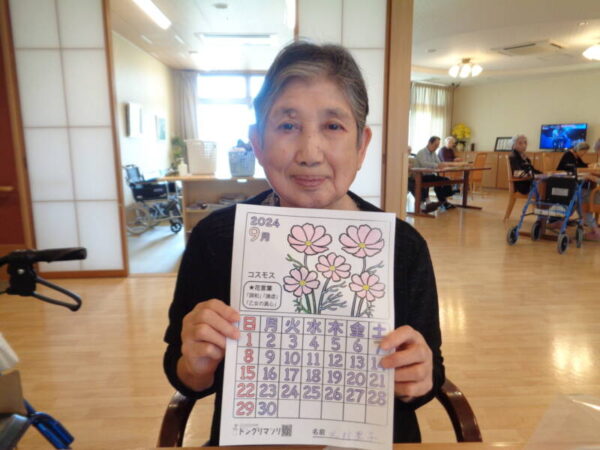 2024
9月
コスモス
★花言葉
「調和」「謙虚」
「乙女の真心」
日 月 火 水 木 金 土
1 2 3 4 5 6 7
8 9 10 11 12 13 14
15 16 17 18 19 20 21
22 23 24 25 26 27 28
29 30
ドングリマツリ
名前